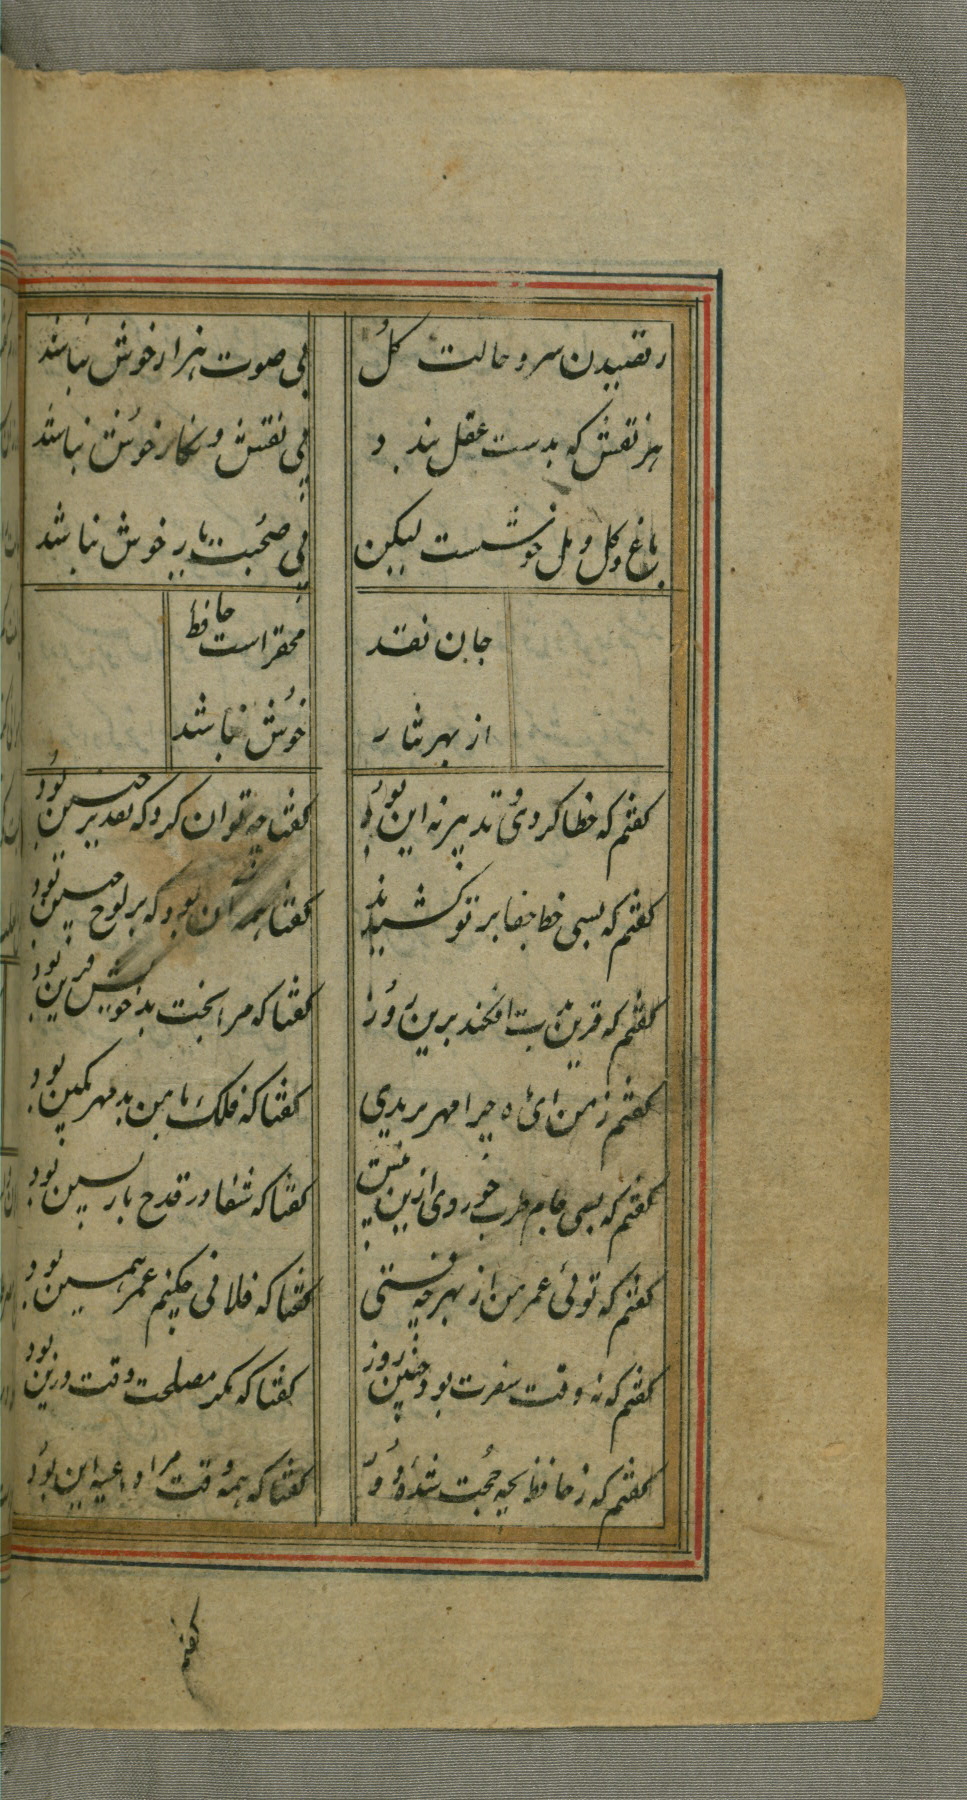 رقصیدن سرو و حالت گل بی صوت هزار خوش نباشد
هر نقش که بدست عقل بندد بی نقش و نگار خوش نباشد
باغ و گل و مل خوشست لیکن بی صحبت یار خوش نباشد
جان نقد محقر است حافظ
از بهر نثار خوش نباشد
گفتم که خطا کردی و تدبیر نه این بود گفتا چه توان کرد که تقدیر چنین بود
گفتم که بسی خط جفا بر تو کشیدند گفتا همه آن بود که بر لوح جبین بود
گفتم که قرین بدت افکند برین روز گفتا که مرا بخت بد خویش قرین بود
گفتم ز من ای ماه چرا مهر بریدی گفتا که فلک با من بد مهر بکین بود
گفتم که بسی جام طرب خوردی ازین پیش گفتا که شفا در قدح باز پسین بود
گفتم که توئی عمر من از بهر چه رفتی گفتا که فلانی چکنم عمر همین بود
گفتم که نه وقت سفرت بود چنین روز گفتا که مگر مصلحت وقت درین بود
گفتم که ز حافظ بچه حجت شدهٔ دور گفتا که همه وقت مرا داعیه این بود
گفتم